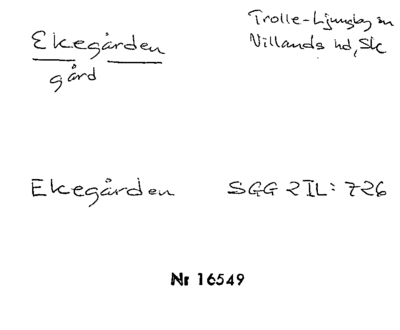 Ekegården
gård
Trolle-Ljungby sn
Villands hd, Sk
Ekegården SGG 2 IL: 726
Nr 16549